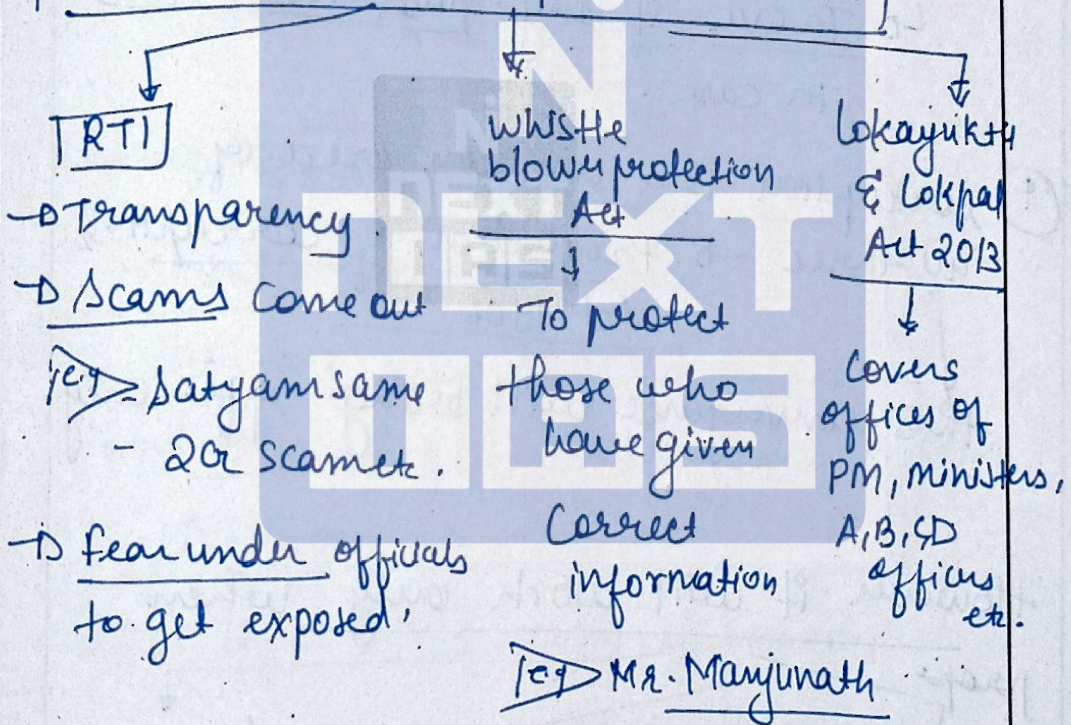 RTI
→ Transparency.
→ Scams come out
eg Satyam same
- 2G scam etc.
→ fear under officials
to get exposed.
Whistle
blower protection
Act
To protect
those who
have given
Correct
information
eg Mr. Manjunath
Lokayukta
& Lokpal
Act, 2013
Covers
offices of
PM, ministers,
A, B, C, D
offices
etc.
NEXT
IAS